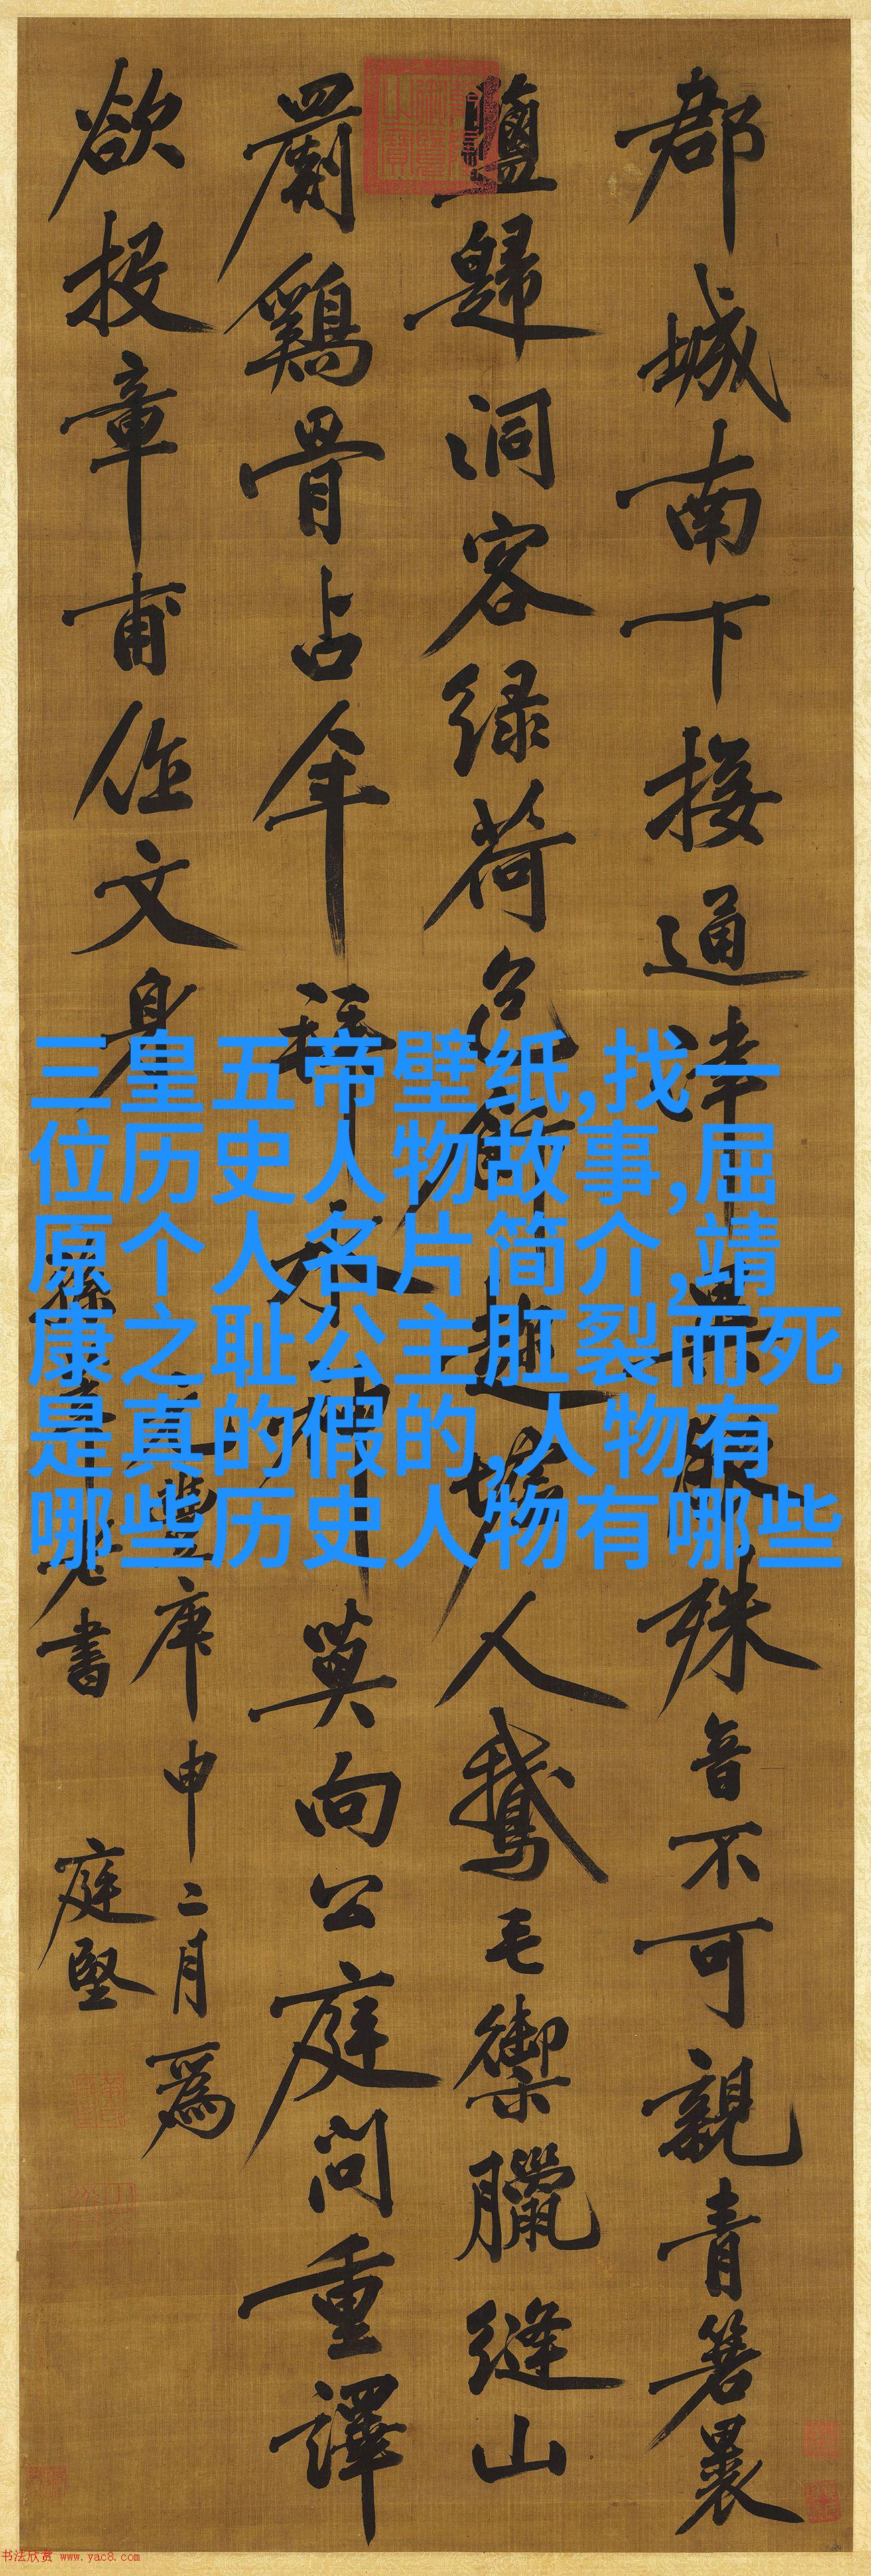 郡城南下接通津異服殊音不可親青箬裹
鹽歸洞客緑荷包飰趁墟人鵝毛御臘縫山
罽鷄骨占年拜水神莫向公庭問重譯
欲投章甫作文身
庚申二月爲
老書 庭堅
三皇五帝壁纸,找一
位历史人物故事,屈
原个人名片简介,靖
康之耻公主肛裂而死
是真的假的,人物有
哪些历史人物有哪些
书法欣赏 www.yac8.com